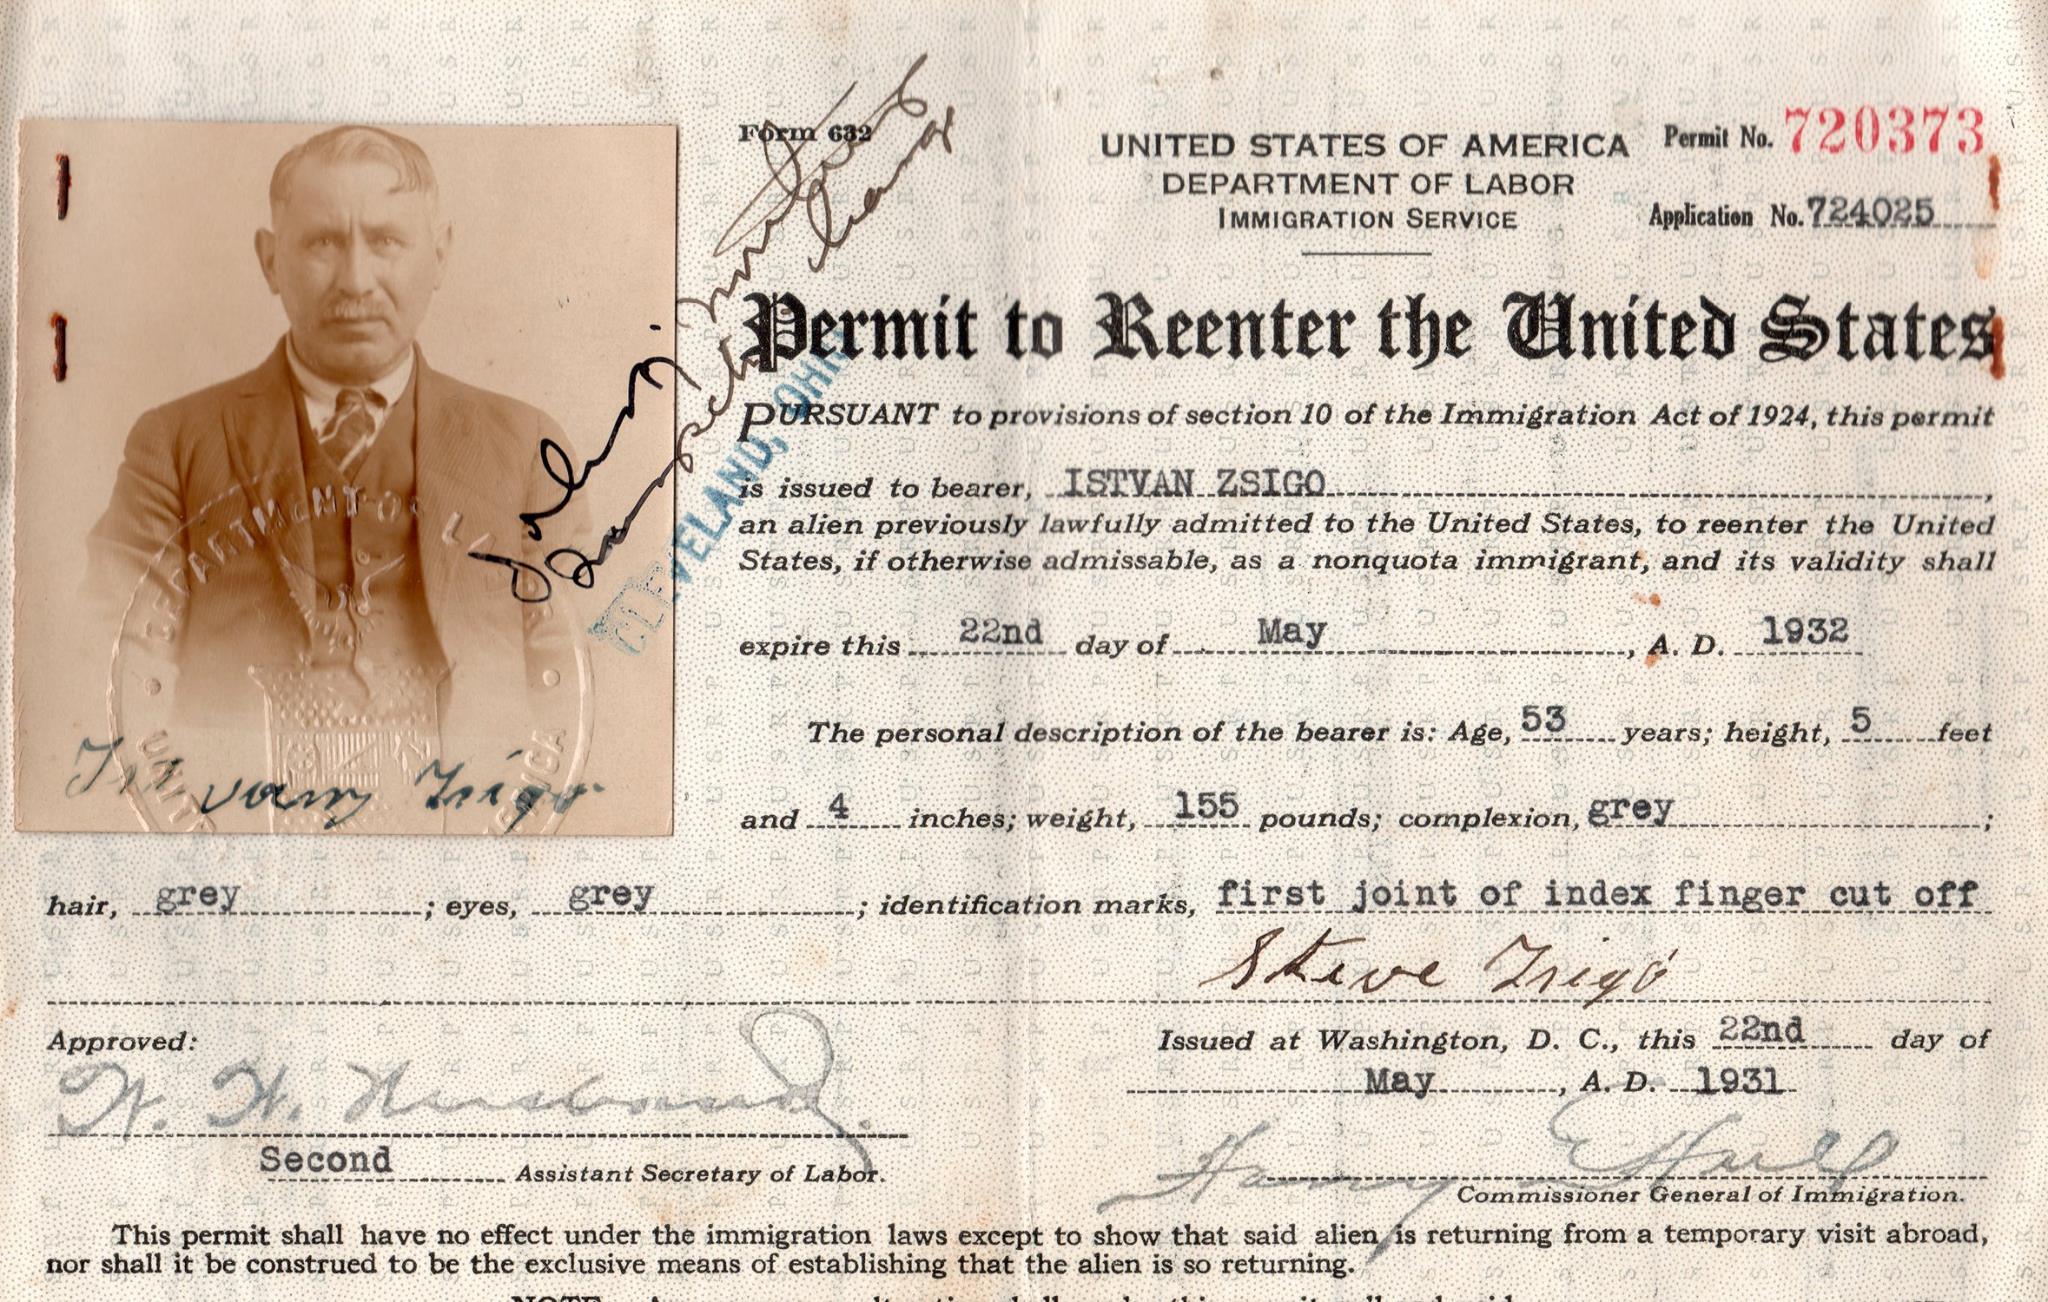 Form 632
UNITED STATES OF AMERICA
DEPARTMENT OF LABOR
IMMIGRATION SERVICE
Permit No. 720373
Application No. 724025
Permit to Reenter the United States
PURSUANT to provisions of section 10 of the Immigration Act of 1924, this permit
is issued to bearer, ISTVAN ZSIGO
an alien previously lawfully admitted to the United States, to reenter the United
States, if otherwise admissable, as a nonquota immigrant, and its validity shall
expire this 22nd day of May, A. D. 1932
CLEVELAND, OHIO
DEPARTMENT OF LABOR
The personal description of the bearer is: Age, 53 years; height, 5 feet
and 4 inches; weight, 155 pounds; complexion, grey;
hair, grey; eyes, grey; identification marks, first joint of index finger cut off
Steve Zsigó
Approved:
Issued at Washington, D. C., this 22nd day of
May, A. D. 1931
W. W. Husband
Second Assistant Secretary of Labor.
Harry E Hull
Commissioner General of Immigration.
This permit shall have no effect under the immigration laws except to show that said alien is returning from a temporary visit abroad,
nor shall it be construed to be the exclusive means of establishing that the alien is so returning.